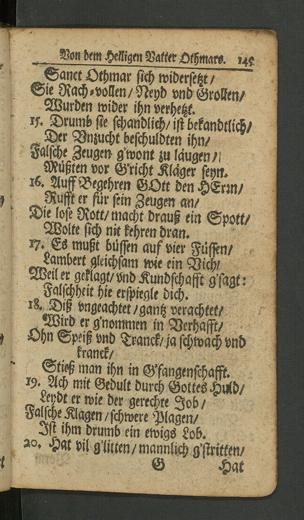 Von dem Heiligen Vatter Othmaro. 145
Sanct Othmar sich widersetzt/
Sie Rach-vollen/ Neyd und Grollen/
Wurden wider ihn verhetzt.
15. Drumb sie schandlich/ ist bekandtlich/
Der Vnzucht beschuldten ihn/
Falsche Zeugen g'wont zu läugen/
Müßten vor G'richt Kläger seyn.
16. Auff Begehren GOtt den HErrn/
Rufft er für sein Zeugen an/
Die lose Rott/ macht drauß ein Spott/
Wolte sich nit kehren dran.
17. Es mußt büssen auf vier Füssen/
Lambert gleichsam wie ein Vich/
Weil er geklagt/ vnd Kundschafft g'sagt:
Falschheit hie erspiegle dich.
18. Diß vngeachtet/ gantz verachtet/
Wird er g'nommen in Verhafft/
Ohn Speiß vnd Tranck/ ja schwach vnd
kranck/
Stieß man ihn in G'fangenschafft.
19. Ach mit Gedult durch Gottes Huld/
Leydt er wie der gerechte Job/
Falsche Klagen/ schwere Plagen/
Ist ihm drumb ein ewigs Lob.
20. Hat vil g'litten/ mannlich g'stritten/
G Hat